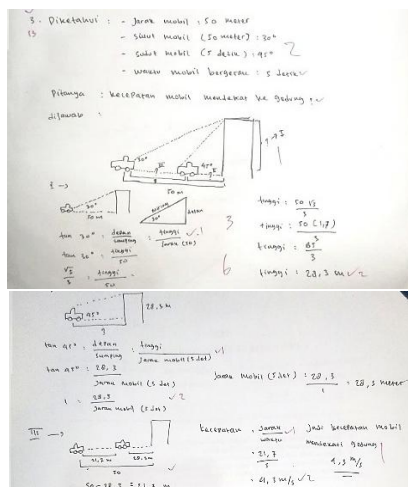 3. Diketahui : - Jarak mobil : 50 meter
13
- sudut mobil (50 meter) : 30°
- sudut mobil (5 detik) : 45°
2
- waktu mobil bergerak : 5 detik
Ditanya : kecepatan mobil mendekat ke gedung :
dijawab :
30°
45°
50 m
I →
30°
50 m
30°
depan
tan 30° : depan/samping : tinggi/Jarak (50)
tan 30° : tinggi/50
√3/3 : tinggi/50
3
6
tinggi : 50 √3/3
tinggi : 50 (1,7)/3
tinggi : 85/3
tinggi : 28,3 m 2
28,3 m
45°
?
tan 45° : depan/samping : tinggi/Jarak mobil (5 det) 1
tan 45° : 28,3/Jarak mobil (5 det)
1 : 28,3/Jarak mobil (5 det) 2
Jarak mobil (5 det) : 28,3/1 : 28,3 meter
III →
28,3m
50
50 - 28,3 = 21,7 m
kecepatan : Jarak/waktu
: 21,7/5
: 4,3 m/s 2
Jadi kecepatan mobil
mendekati gedung
4,3 m/s